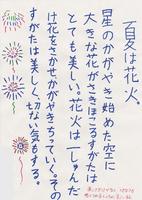 夏は花火。
星のかがやき始めた空に
大きな花がさきほこるすがたは
とても美しい。花火は一しゅんだ
け花をさかせ、かがやきちっていく。その
すがたは美しく、切ない気もする。